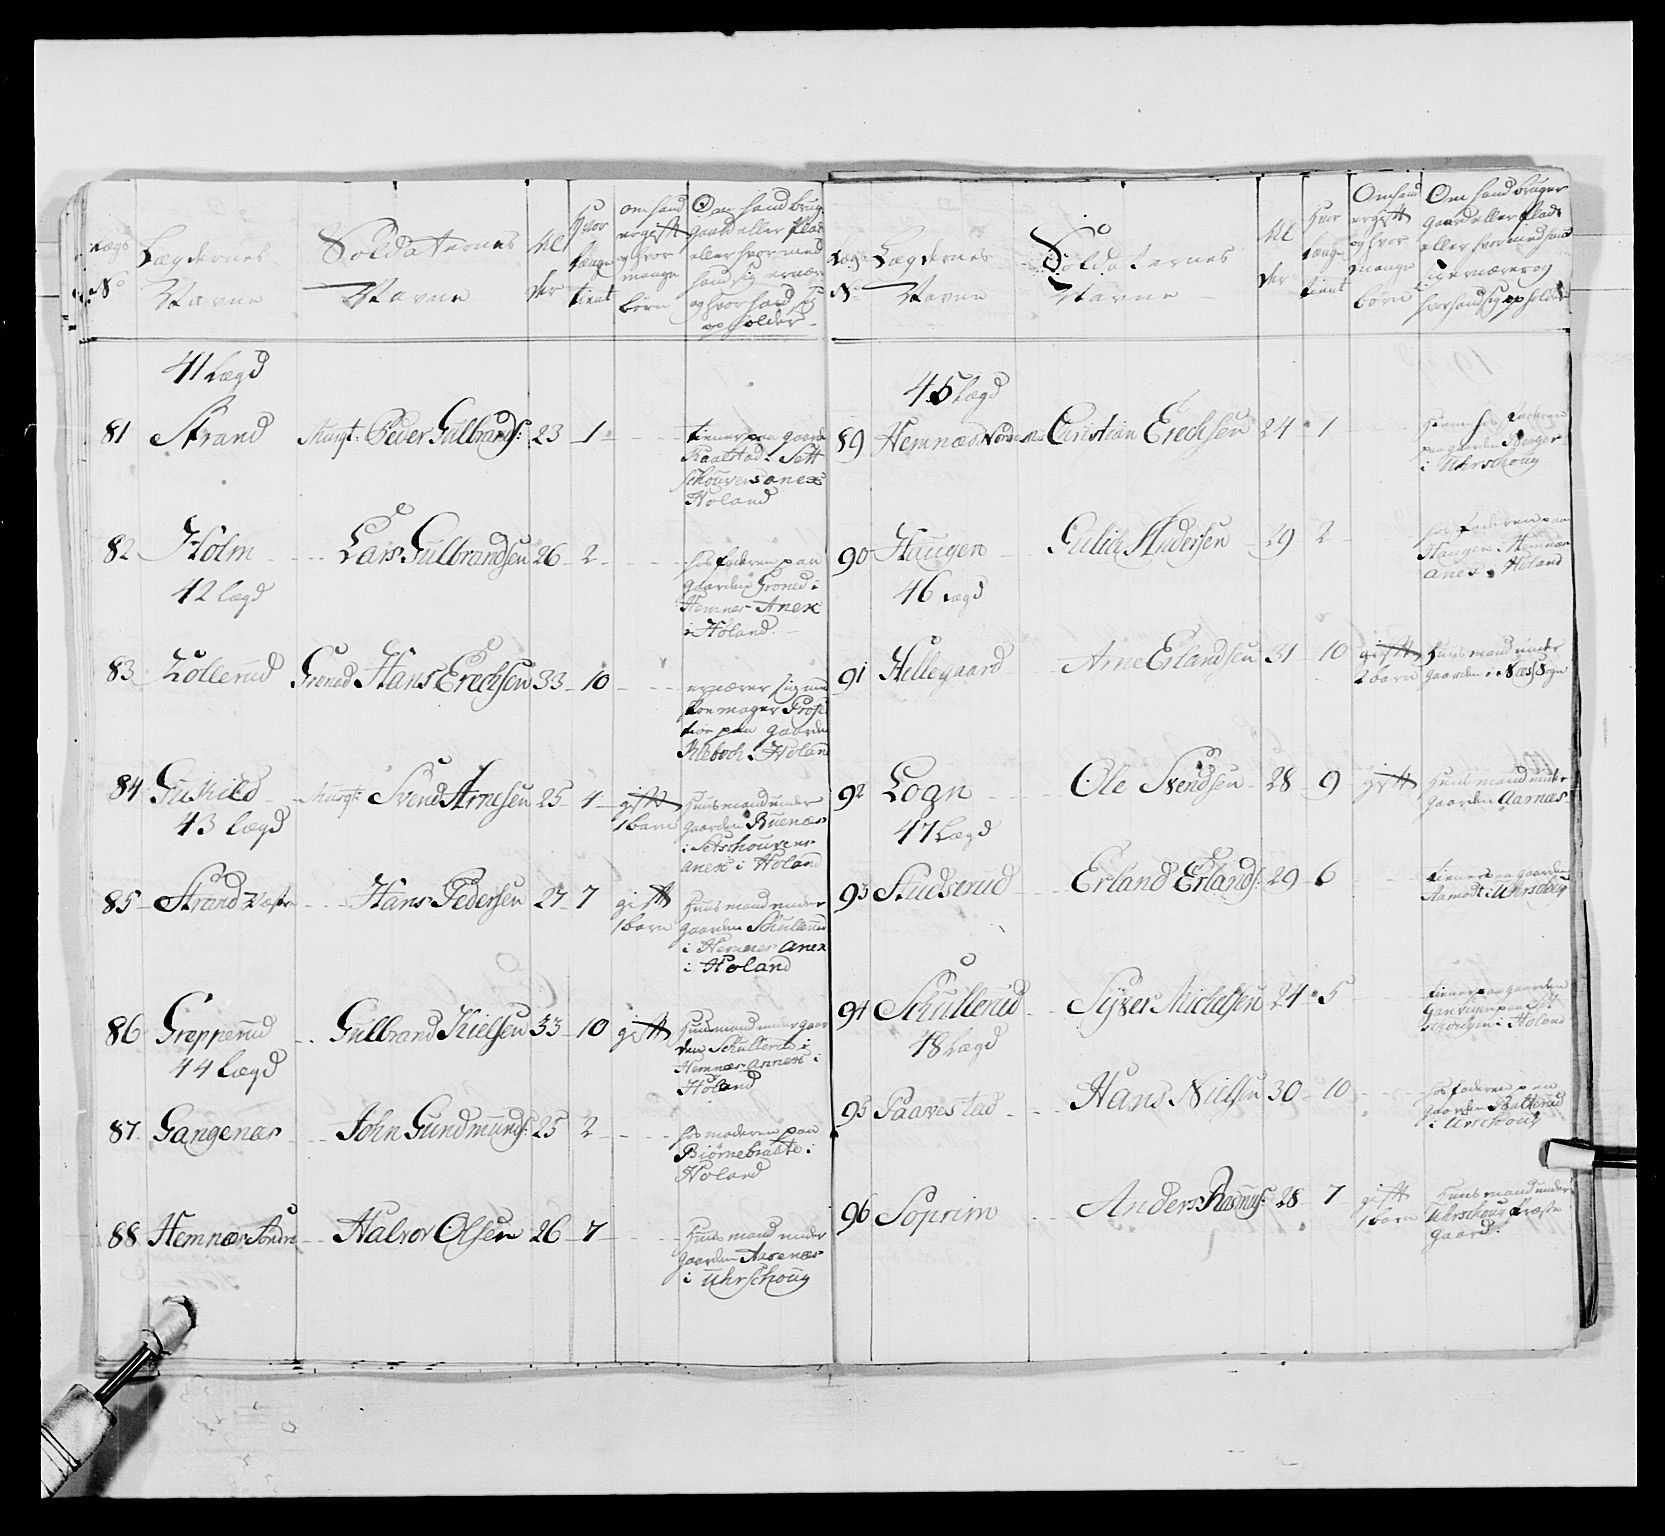 Lægs
No
Lægdernes
Navne
Soldaternes
Navne
Al
der
Hvor
længe
tient
om hand
er gift
og hvor
mange
børn
Om hand brug
gaard eller Plads
eller hvormed
hand sig ernær
og hvor hand sig
op holder
41 Lægd
81 Strand Musqt: Peder Gulbrands: 23 1
tiener paa gaarden
i Sett
Schouvens anex
Høland
82 Holm Lars Gulbrandsen 26 2
hos faderen paa
gaarden Groned i
Hemnes Anex
i Høland
42 Lægd
83 Tollerud Grenad Hans Erechsen 33 10
ernærer sig med
skoemager Profe
tion paa gaarden
i Høland
84 Musqt: Svend Arnesen 25 4 gift
1 barn
Huusmand under
gaarden Buenæs
i Setschouvens
anex i Høland
43 Lægd
85 Strand Væstre Hans Pedersen 27 7 gift
1 barn
Huusmand under
gaarden Schullerud
i Hemnes anex
i Høland
86 Grepperud Gulbrand Kielsen 33 10 gift
Huusmand under gaar
den Schullerud i
Hemnæs annex i
Høland
44 Lægd
87 Gangenæs John Gundmunds: 25 2
hos moderen paa
Biørnebraate i
Høland
88 Hemnæs Søndre Halvor Olsen 26 7
Huusmand under
gaarden Aasenæs
i Uhrschoug
Lægs
No
Lægdernes
Navne
Soldaternes
Navne
Al
der
Hvor
længe
tient
Om hand
er gift
og hvor
mange
børn
Om hand bruger
gaard eller Plads
eller hvormed hand
sig ernærer og
hvor hand sig op holder
45 Lægd
89 Hemnæs Nordre Christian Erechsen 24 1
tiener hos Faderen
paa gaarden Berger
i Uhrschoug
90 Haugen Gulich Andersen 29 2
hos Faderen paa
Haugen i Hemnæs
anex i Høland
46 Lægd
91 Hellegaard Arne Erlandsen 31 10 gift
2 barn
Huusmand under
gaarden i Næs Sogn
92 Logn Ole Svendsen 28 9 gift
Huusmand under
gaarden Aarnæs
47 Lægd
93 Studserud Erland Erlands: 29 6
tiener paa gaarden
Aamodt i Uhrschoug
94 Schullerud Syver Michelsen 24 5
tiener paa gaarden
paa Set
schougen i Høland
48 Lægd
95 Paavestad Hans Nielsen 30 10
hos faderen paa
gaarden
i Urschoug
96 Soprim Anders Rasmus: 28 7 gift
1 barn
Huusmand under
Uhrschoug Præste
gaard